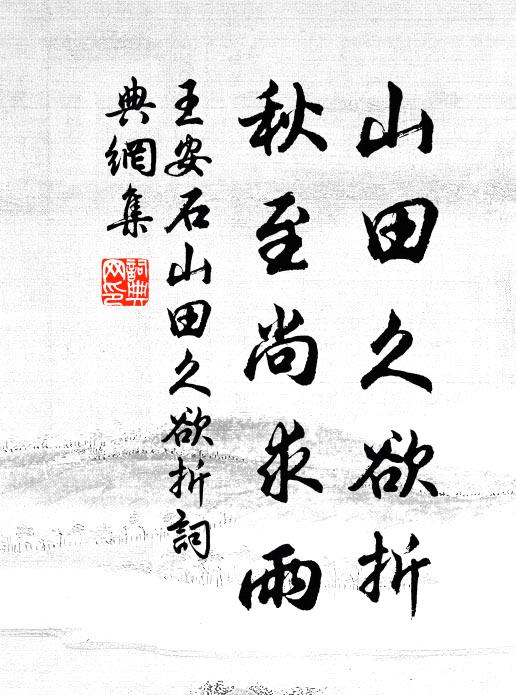 山田久欲折
秋至尚求雨
王安石山田久欲折詞
典網集
詞典
网印